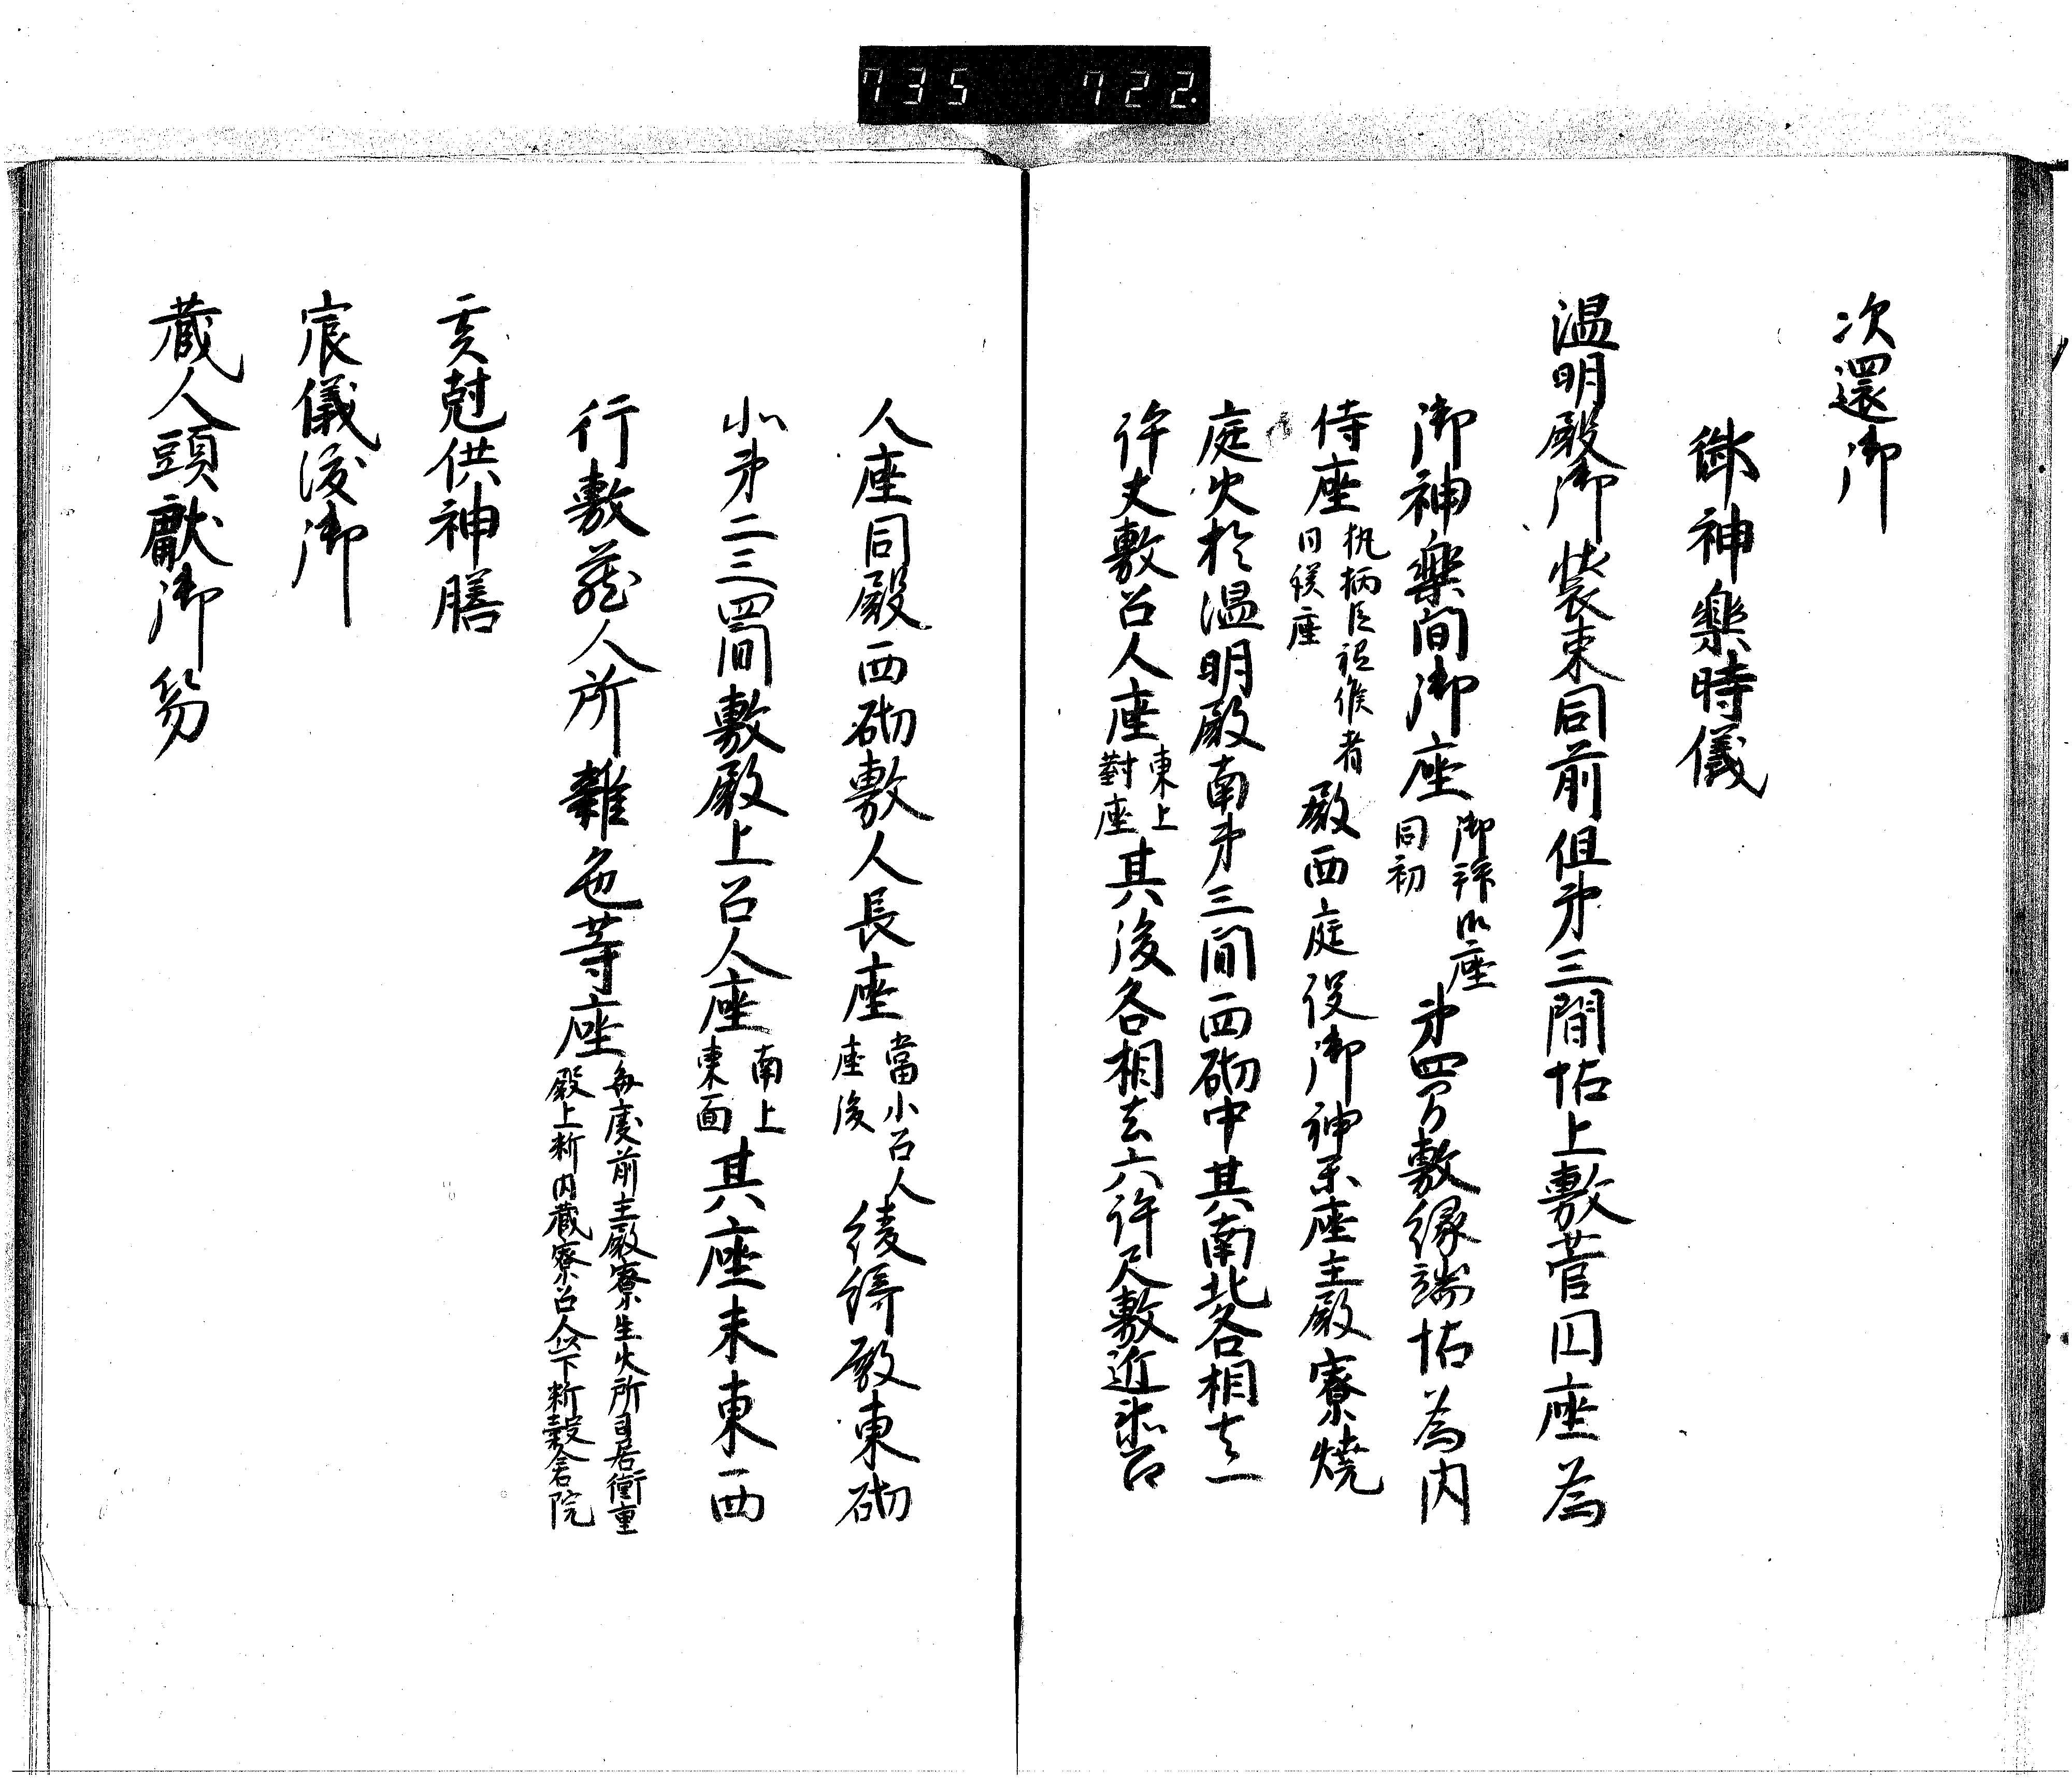 735 722.
次還御
御神樂時儀
温明殿御裝束同前但第三間帖上敷菅円座為
御神樂間御座
御拝御座
同初
第四間敷縁端帖為内
侍座
執柄臣祗候者
同候座
殿西庭設御神楽座主殿寮燒
庭火於温明殿南第三間西砌中其南北各相去一
許丈敷召人座
東上
對座
其後各相去六許尺敷近衛召
人座同殿西砌敷人長座
當小召人
座後
綾綺殿東砌
北第二三四間敷殿上召人座
南上
東面
其座末東西
行敷蔵人所雜色等座
毎座前主殿寮生火所司居衝重
殿上料内蔵寮召人以下料穀倉院
亥尅供神膳
宸儀渡御
蔵人頭獻御笏